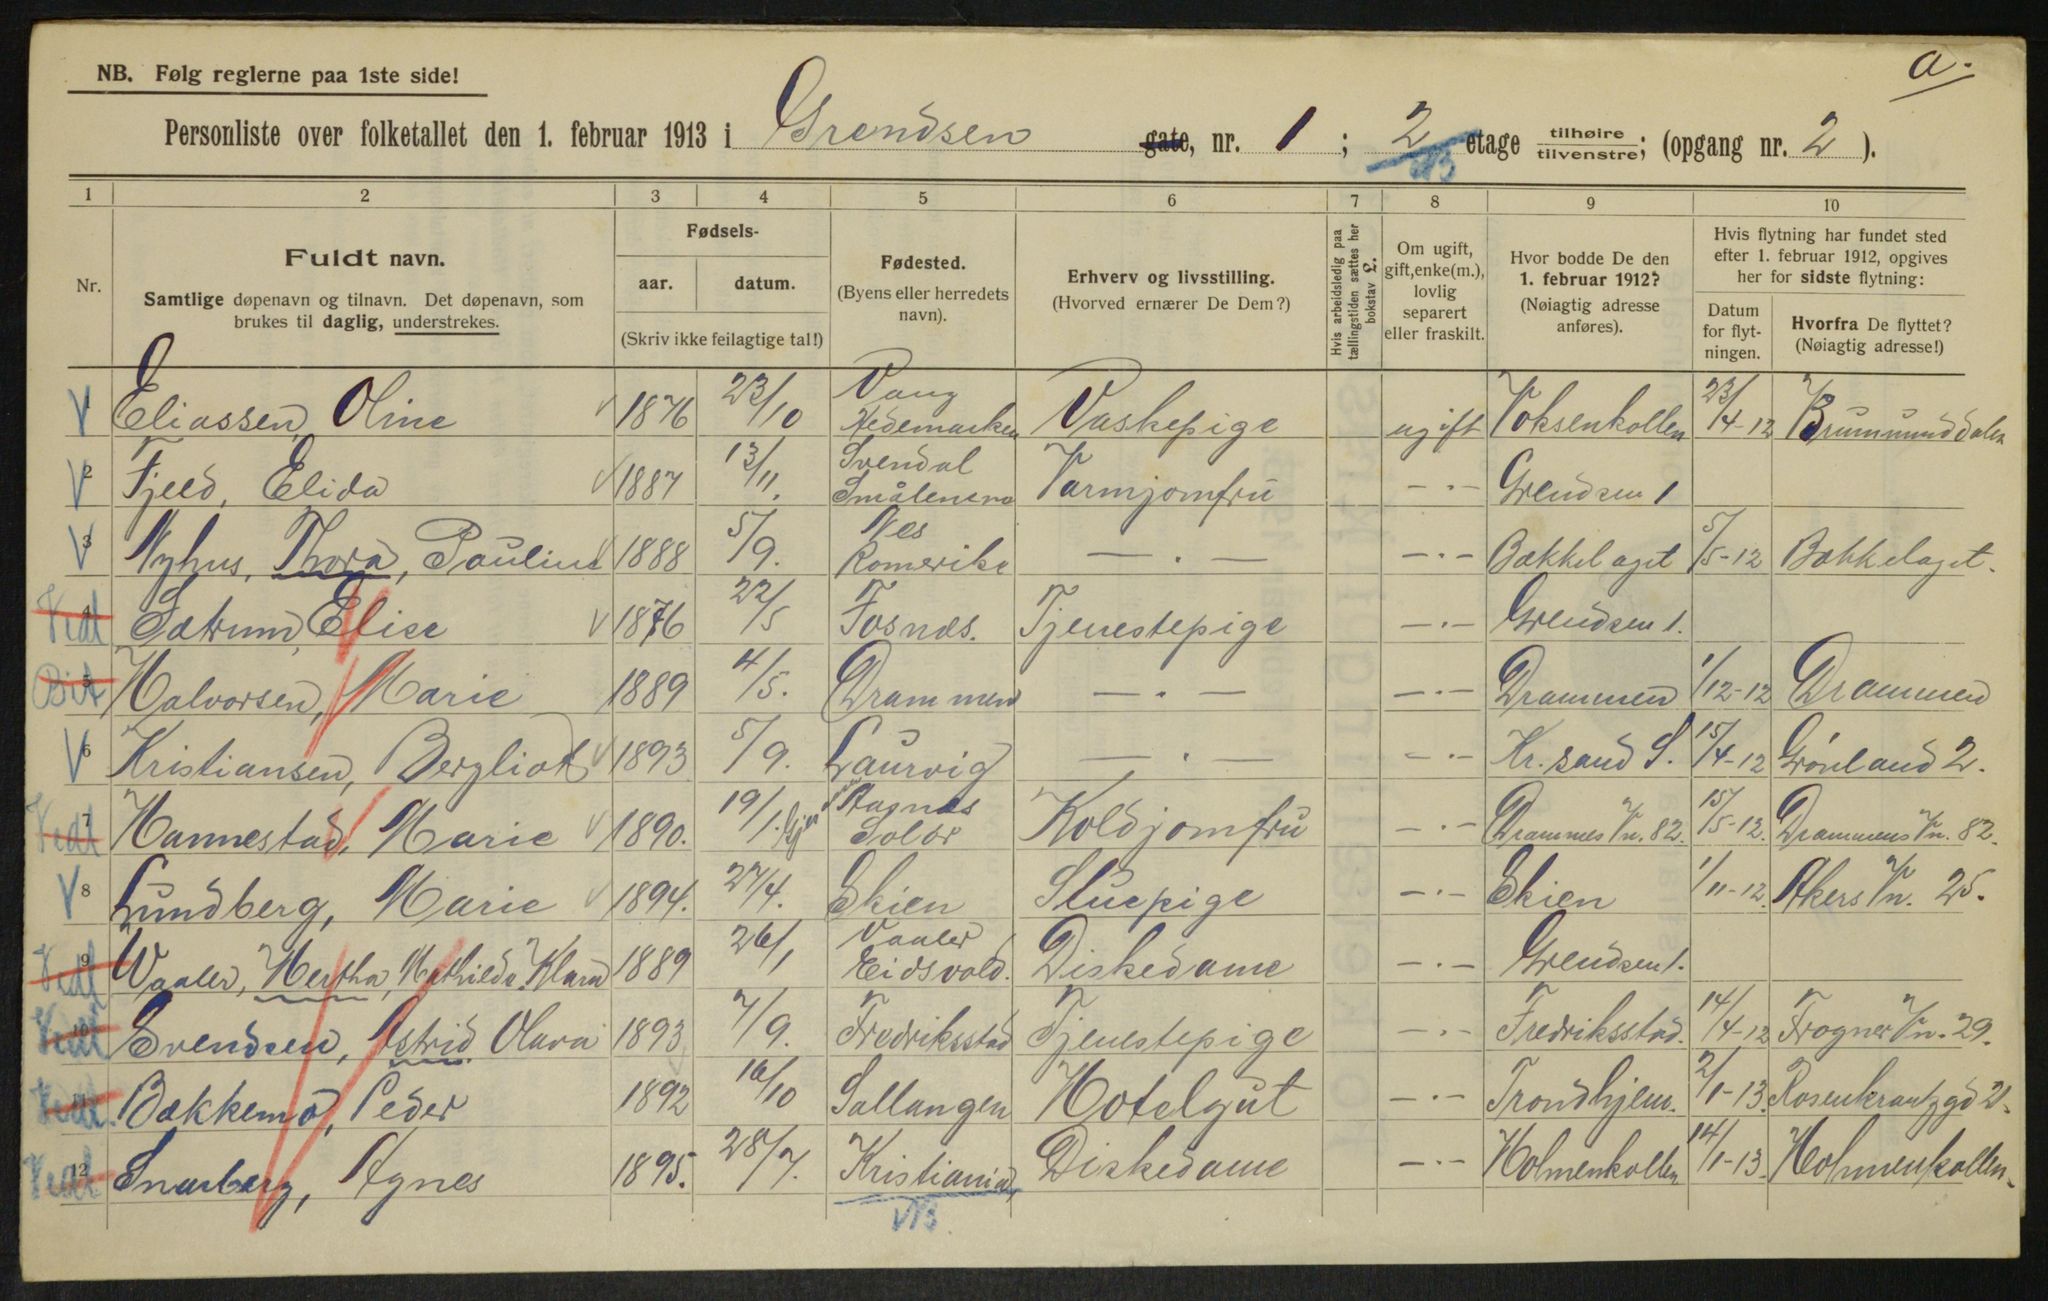 a.
NB. Følg reglerne paa 1ste side!
Personliste over folketallet den 1. februar 1913 i Grendsen gate, nr. 1 ; 2 etage tilhøire/tilvenstre; (opgang nr. 2 ).
1 2 3 4 5 6 7 8 9 10
Nr.
Fuldt navn.
Samtlige døpenavn og tilnavn. Det døpenavn, som
brukes til daglig, understrekes.
Fødsels-
aar. datum.
(Skriv ikke feilagtige tal!)
Fødested.
(Byens eller herredets
navn).
Erhverv og livsstilling.
(Hvorved ernærer De Dem?)
Hvis arbeidsledig paa
tællingstiden sættes her
bokstav £.
Om ugift,
gift, enke(m.),
lovlig
separert
eller fraskilt.
Hvor bodde De den
1. februar 1912?
(Nøiagtig adresse
anføres).
Hvis flytning har fundet sted
efter 1. februar 1912, opgives
her for sidste flytning:
Datum
for flyt-
ningen.
Hvorfra De flyttet?
(Nøiagtig adresse!)
V 1 Eliassen, Oline 1876 23/10 Vang Hedemarken Vaskepige ugift Voksenkollen 23/4-12 Brummunddalen
V 2 Fjeld, Elida 1887 13/11. Svendal Smålenene Varmjomfru — · — Grendsen 1
V 3 Nyhus, Thora, Pauline 1888 5/9. Nes Romerike — · — — · — Bækkelaget 5/5-12 Bækkelaget.
Vedt 4 Sætrum, Elise 1876 22/5 Fosnæs. Tjenestepige — · — Grendsen 1.
5 Halvorsen, Marie 1889 4/5. Drammen — · — — · — Drammen 1/12-12 Drammen
V 6 Kristiansen, Bergliot 1893 5/9. Laurvig — · — — · — Kr.sand S. 15/4-12 Grønland 2.
Vedt 7 Hannestad, Marie 1890. 19/1. Solør Koldjomfru — · — Drammens Vn. 82. 15/5-12. Drammens Vn. 82.
V 8 Lundberg, Marie 1894. 27/4. Skien Stuepige — · — Skien 1/11-12. Akers Vn. 25.
Vedt 9 Vaaler, Hertha, Mathilde Klara 1889 26/1 Vaaler Eidsvold. Diskedame — · — Grendsen 1.
Vedt 10 Svendsen, Astrid Olava 1893 7/9. Fredriksstad Tjenestepige — · — Fredriksstad. 14/4-12 Frogner Vn. 29.
Vedt. 11 Bækkemo, Peder 1892 16/10 Sallangen Hotelgut — · — Trondhjem. 2/1-13. Rosenkrantzgd 21.
Vedt 12 Snarberg, Agnes 1895. 28/7. Kristiania, Diskedame — · — Holmenkollen 14/1-13. Holmenkollen.